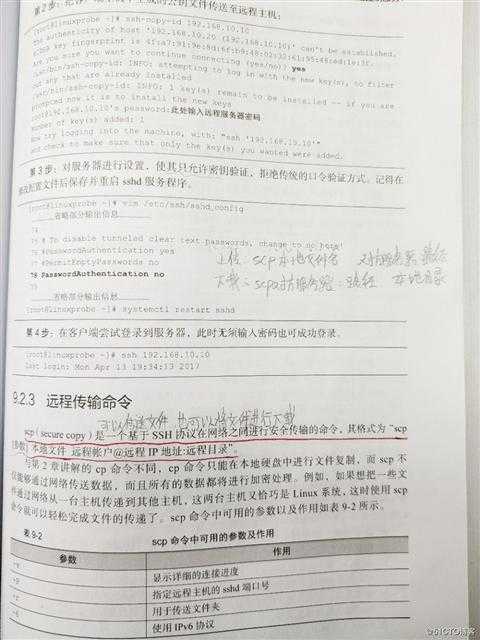 第2步：
[root@linuxprobe ~]# ssh-copy-id 192.168.10.10
The authenticity of host '192.168.10.20 (192.168.10.10)' can't be established.
ECDSA key fingerprint is
Are you sure you want to continue connecting (yes/no)? yes
/usr/bin/ssh-copy-id: INFO: attempting to log in with the new key(s), to filter
out any that are already installed
/usr/bin/ssh-copy-id: INFO: 1 key(s) remain to be installed -- if you are
prompted now it is to install the new keys
root@192.168.10.10's password:此处输入远程服务器密码
Number of key(s) added: 1
Now try logging into the machine, with: "ssh '192.168.10.10'"
and check to make sure that only the key(s) you wanted were added.
第3步：对服务器进行设置，使其只允许密钥验证，拒绝传统的口令验证方式。记得在
修改配置文件后保存并重启 sshd 服务程序。
[root@linuxprobe ~]# vim /etc/ssh/sshd_config
………………省略部分输出信息………………
74
75 # To disable tunneled clear text passwords, change to no here!
76 #PasswordAuthentication yes
77 #PermitEmptyPasswords no
78 PasswordAuthentication no
79
………………省略部分输出信息………………
上传 scp 本地文件名 对方服务器 路径
下载：scp 对方服务器：路径 本地目录
[root@linuxprobe ~]# systemctl restart sshd
第4步：在客户端尝试登录到服务器，此时无须输入密码也可成功登录。
[root@linuxprobe ~]# ssh 192.168.10.10
Last login: Mon Apr 13 19:34:13 2017
9.2.3 远程传输命令
可以传送文件 也可以将文件进行下载
scp（secure copy）是一个基于 SSH 协议在网络之间进行安全传输的命令，其格式为“scp
[参数] 本地文件 远程帐户@远程 IP 地址:远程目录”。
与第 2 章讲解的 cp 命令不同，cp 命令只能在本地硬盘中进行文件复制，而 scp 不
仅能够通过网络传送数据，而且所有的数据都将进行加密处理。例如，如果想把一些文
件通过网络从一台主机传递到其他主机，这两台主机又恰巧是 Linux 系统，这时使用 scp
命令就可以轻松完成文件的传递了。scp 命令中可用的参数以及作用如表 9-2 所示。
表 9-2 scp 命令中可用的参数及作用
参数 作用
-v 显示详细的连接进度
-P 指定远程主机的 sshd 端口号
-r 用于传送文件夹
-6 使用 IPv6 协议
@51CTO博客